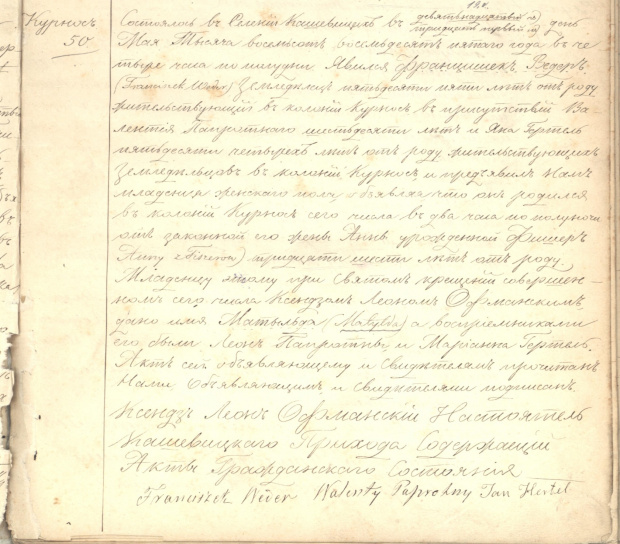 Курносъ
50.
19/V.
Состоялось въ Селеніи Кашевицахъ въ девятнадцатый (тридцать первый) день
Мая Тысяча восемьсотъ восемьдесятъ пятаго года въ че-
тыре часа по полудни. Явился Францишекъ Ведеръ
(Franciszek Weder) Земледелецъ пятьдесяти пяти лѣтъ отъ роду
жительствующій въ колоніи Курносъ въ присутствіи Ва-
лентія Папротнаго шестидесяти лѣтъ и Яна Гертель
пятьдесяти четырехъ лѣтъ отъ роду жительствующихъ
Земледѣльцовъ въ колоніи Курносъ и предъявилъ Намъ
младенца женскаго пола, объявляя что онъ родился
въ колоніи Курносъ сего числа въ два часа по полуночи
отъ законной его жены Анны урожденной Фишеръ
Anny z Fiszrów) тридцати шести лѣтъ отъ роду.
Младенцу этому при Святомъ крещеніи совершен-
номъ сего числа Ксендзомъ Леономъ Офманскимъ
дано имя Матыльда (Matylda) а воспріемниками
его были Леонъ Папротны и Марьанна Гертель.
Актъ сей объявляющему и Свидѣтелямъ прочитанъ
Нами Объявляющимъ и свидѣтелями подписанъ.
Ксендзъ Леонъ Офманскій Настоятель
Кашевицкаго Прихода Содержащій
Акты Гражданскаго Состоянія
Franciszek Weder Walenty Paprotny Jan Hertel